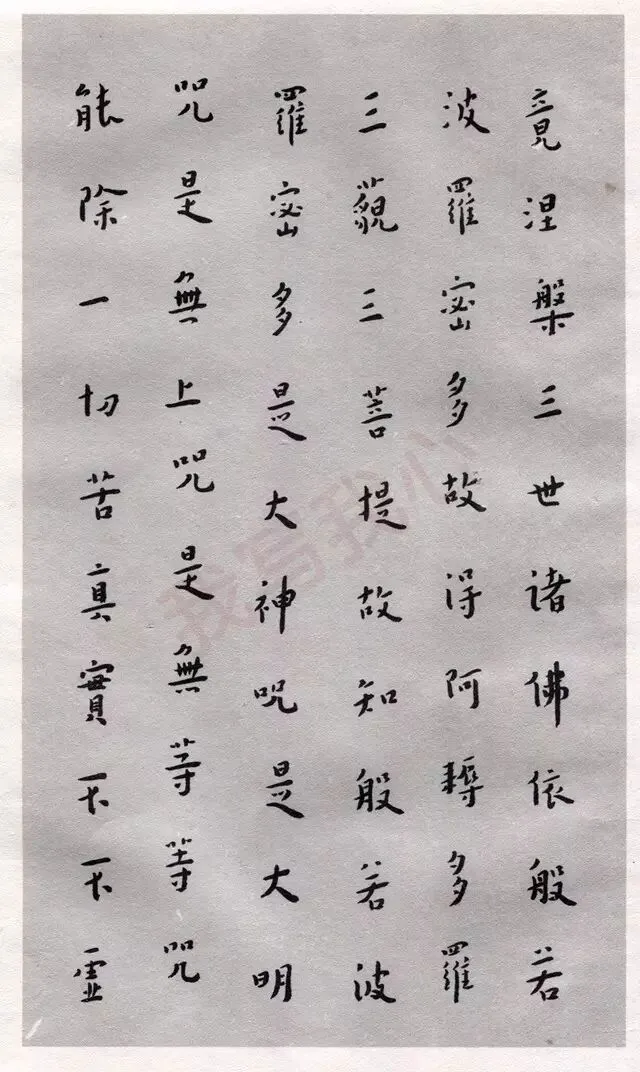 竟涅槃三世諸佛依般若
波羅密多故得阿耨多羅
三藐三菩提故知般若波
羅密多是大神咒是大明
咒是無上咒是無等等咒
能除一切苦真實不不虛
我寫我心